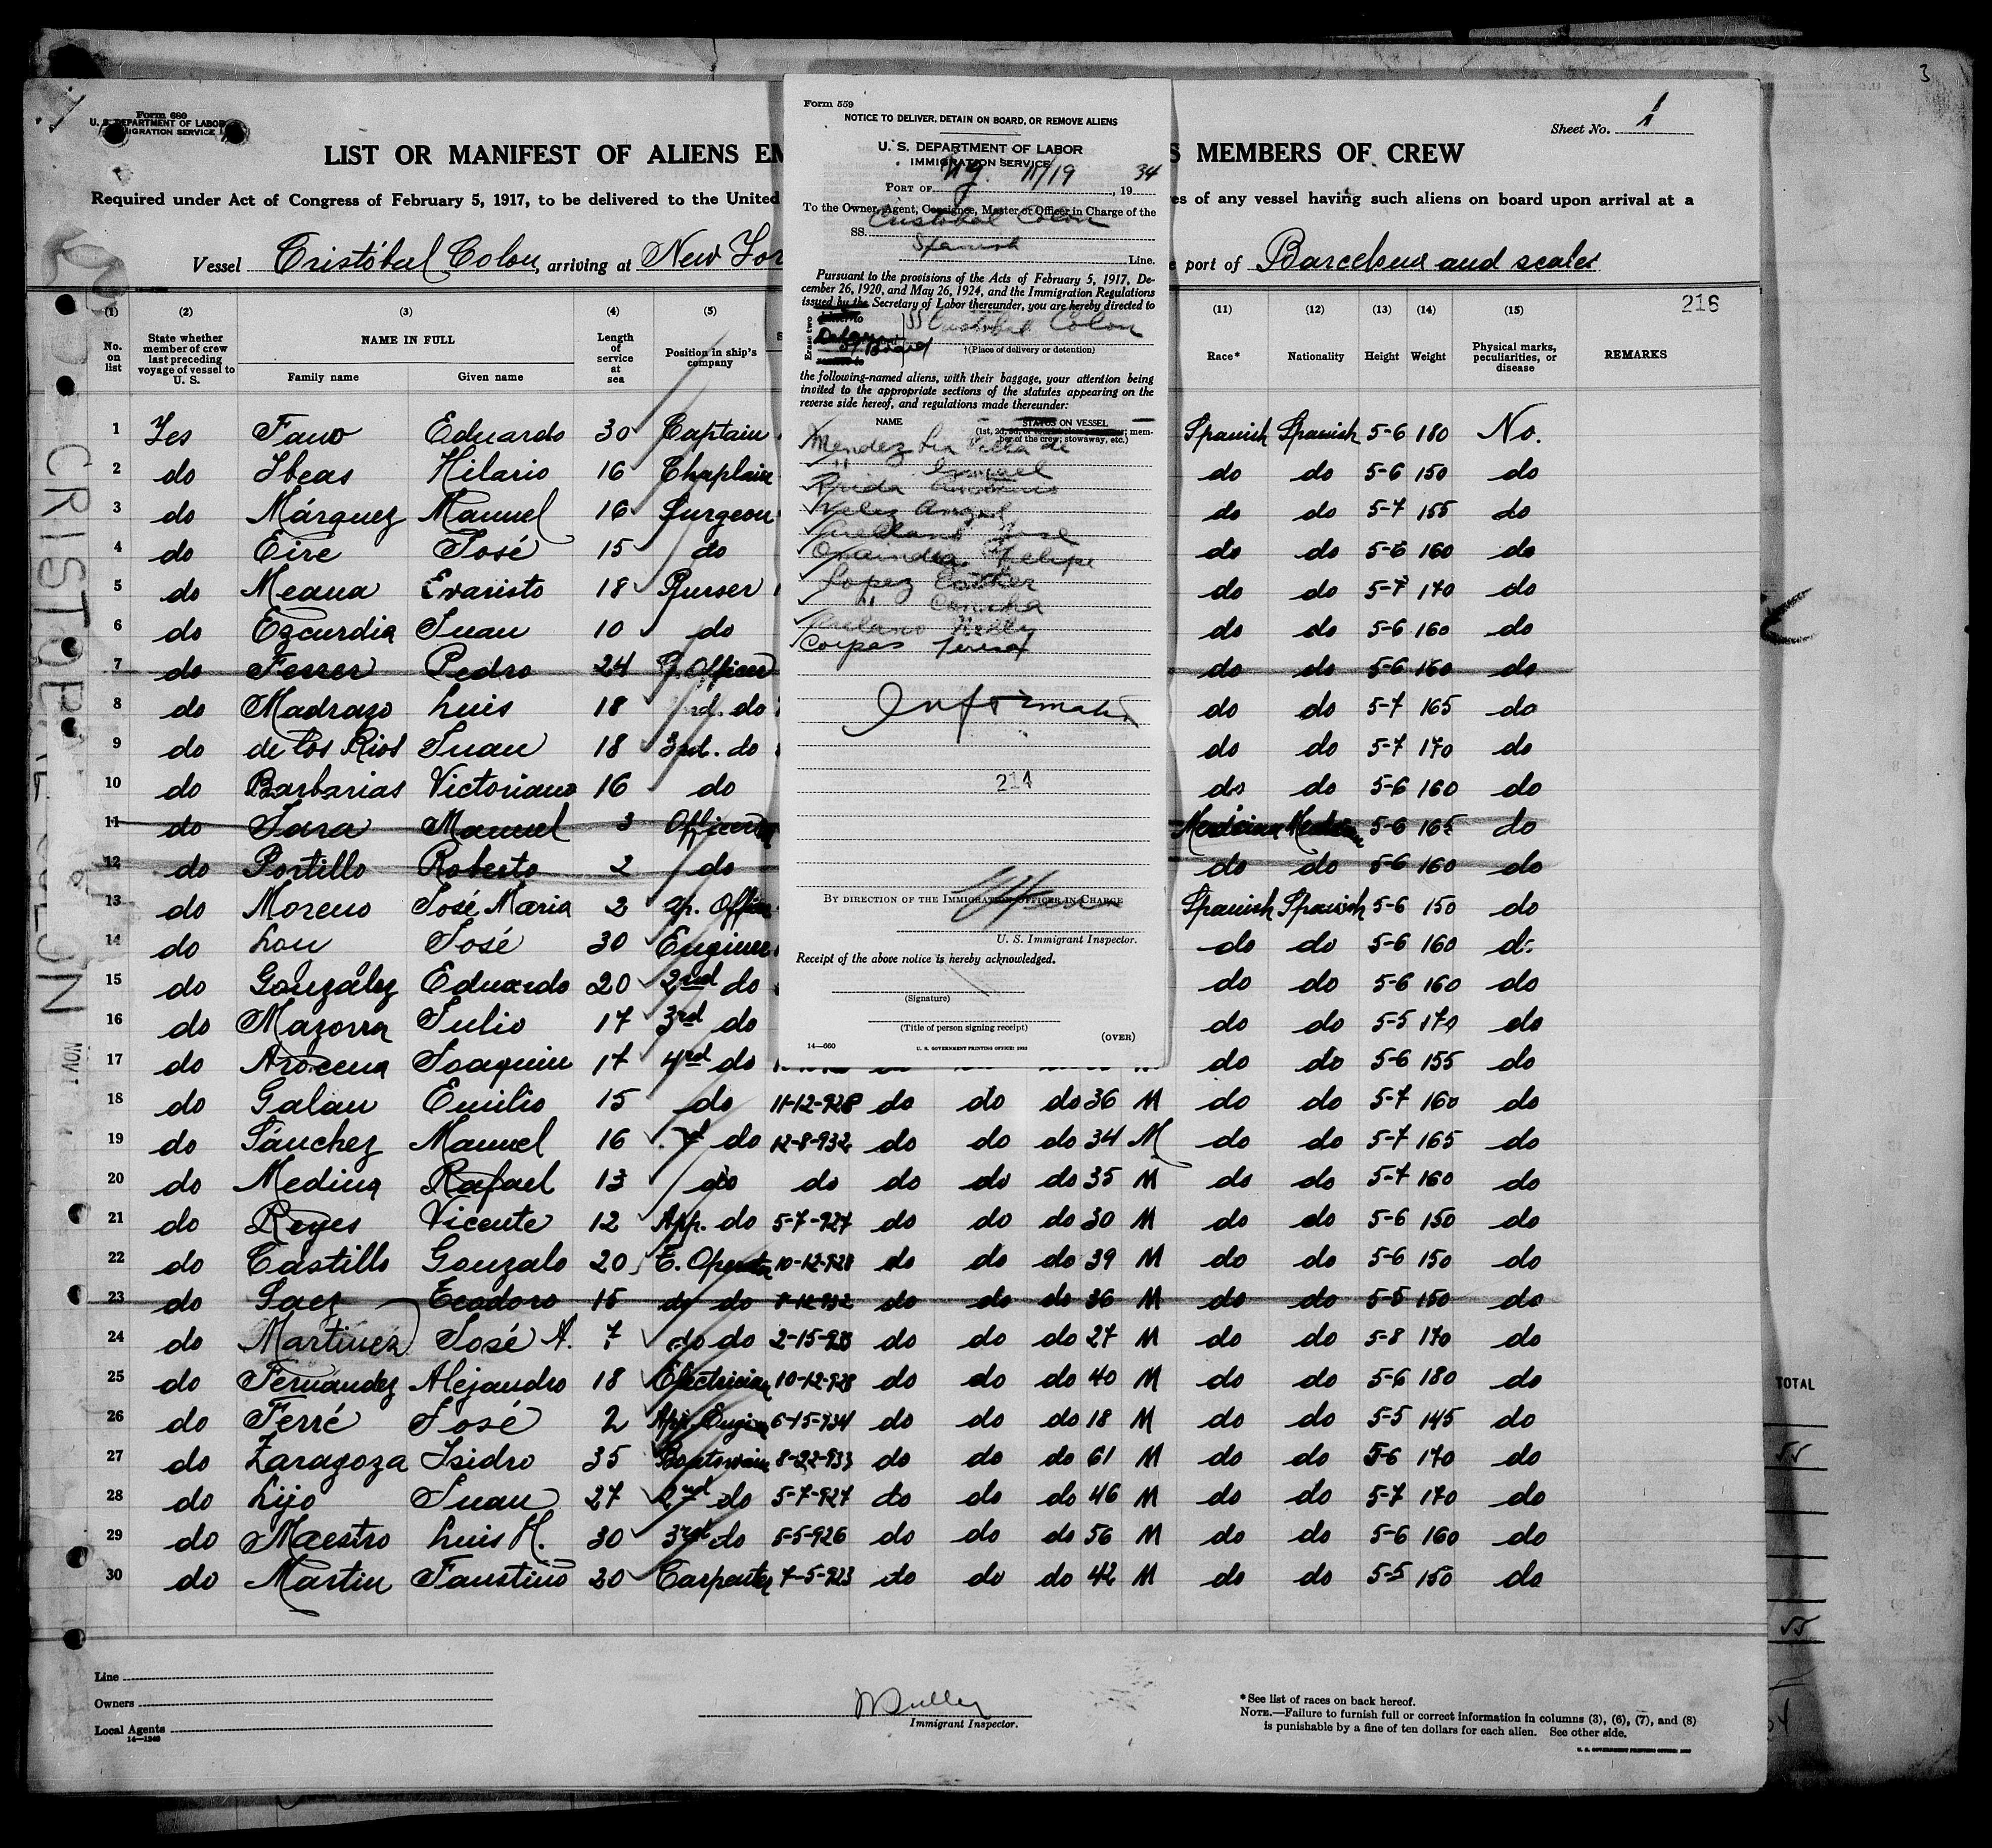 3
Form 680
U. S. DEPARTMENT OF LABOR
IMMIGRATION SERVICE
Sheet No. 1
LIST OR MANIFEST OF ALIENS EM
S MEMBERS OF CREW
Required under Act of Congress of February 5, 1917, to be delivered to the United
es of any vessel having such aliens on board upon arrival at a
Vessel Cristóbal Colon, arriving at New Yor
port of Barcelona and scales
216
(1) (2) (3) (4) (5) (11) (12) (13) (14) (15)
No. on list
State whether member of crew last preceding voyage of vessel to U. S.
NAME IN FULL
Family name Given name
Length of service at sea
Position in ship's company
Race* Nationality Height Weight
Physical marks, peculiarities, or disease
REMARKS
1 Yes Fano Eduardo 30 Captain Spanish Spanish 5-6 180 No.
2 do Ibeas Hilario 16 Chaplain do do 5-6 150 do
3 do Márquez Manuel 16 Surgeon do do 5-7 155 do
4 do Eire José 15 do do do 5-6 160 do
5 do Meana Evaristo 18 Purser do do 5-7 170 do
6 do Ezcurdia Juan 10 do do do 5-6 160 do
7 do Ferrer Pedro 24 Officer do do 5-6 160 do
8 do Madrazo Luis 18 do do do 5-7 165 do
9 do de los Rios Juan 18 3rd. do do do 5-7 170 do
10 do Barbarias Victoriano 16 do do do 5-6 160 do
11 do Jara Manuel 3 Officer Mexican 5-6 165 do
12 do Portillo Roberto 2 do do do 5-6 160 do
13 do Moreno José Maria 2 Ap. Officer Spanish Spanish 5-6 150 do
14 do Lou José 30 Engineer do do 5-6 160 do
15 do González Eduardo 20 2nd do do do 5-6 160 do
16 do Mazorra Julio 17 3rd do do do 5-5 170 do
17 do Arocena Joaquin 17 4rd do do do 5-6 155 do
18 do Galan Emilio 15 do 11-12-928 do do do 36 M do do 5-7 160 do
19 do Sánchez Manuel 16 do 12-8-932 do do do 34 M do do 5-7 165 do
20 do Medina Rafael 13 do do do do do 35 M do do 5-7 160 do
21 do Reyes Vicente 12 App. do 5-7-927 do do do 30 M do do 5-6 150 do
22 do Castillo Gonzalo 20 E. Operator 10-12-928 do do do 39 M do do 5-6 150 do
23 do Saez Teodoro 15 do do do do do 36 M do do 5-5 150 do
24 do Martinez José A. 7 do do 2-15-933 do do do 27 M do do 5-8 170 do
25 do Fernandez Alejandro 18 Electrician 10-12-928 do do do 40 M do do 5-6 180 do
26 do Ferré José 2 App. Engineer 6-15-934 do do do 18 M do do 5-5 145 do
27 do Zaragoza Isidro 35 Boatswain 8-22-933 do do do 61 M do do 5-6 170 do
28 do Lijo Juan 27 2nd do 5-7-927 do do do 46 M do do 5-7 170 do
29 do Maestro Luis M. 30 3rd do 5-5-926 do do do 56 M do do 5-6 160 do
30 do Martin Faustino 20 Carpenter 7-5-923 do do do 42 M do do 5-5 150 do
Form 559
NOTICE TO DELIVER, DETAIN ON BOARD, OR REMOVE ALIENS
U. S. DEPARTMENT OF LABOR
IMMIGRATION SERVICE
PORT OF NY. 11/19, 1934
To the Owner, Agent, Consignee, Master or Officer in Charge of the
SS. Cristobal Colon
Spanish Line.
Pursuant to the provisions of the Acts of February 5, 1917, De-
cember 26, 1920, and May 26, 1924, and the Immigration Regulations
issued by the Secretary of Labor thereunder, you are hereby directed to
Erase two
SS Cristobal Colon
on Board
†(Place of delivery or detention)
the following-named aliens, with their baggage, your attention being
invited to the appropriate sections of the statutes appearing on the
reverse side hereof, and regulations made thereunder:
NAME STATUS ON VESSEL
(1st, 2d, 3d, mem-
ber of the crew; stowaway, etc.)
Mendez
Velez Angel
Jose
Felipe
Lopez Esther
" Concha
Nelly
Corpas Teresa
214
BY DIRECTION OF THE IMMIGRATION OFFICER IN CHARGE
U. S. Immigrant Inspector.
Receipt of the above notice is hereby acknowledged.
(Signature)
(Title of person signing receipt)
(OVER)
14—660
U. S. GOVERNMENT PRINTING OFFICE: 1933
Line
Owners
Local Agents
14—1240
Immigrant Inspector.
*See list of races on back hereof.
NOTE.—Failure to furnish full or correct information in columns (3), (6), (7), and (8)
is punishable by a fine of ten dollars for each alien. See other side.
TOTAL
55
55